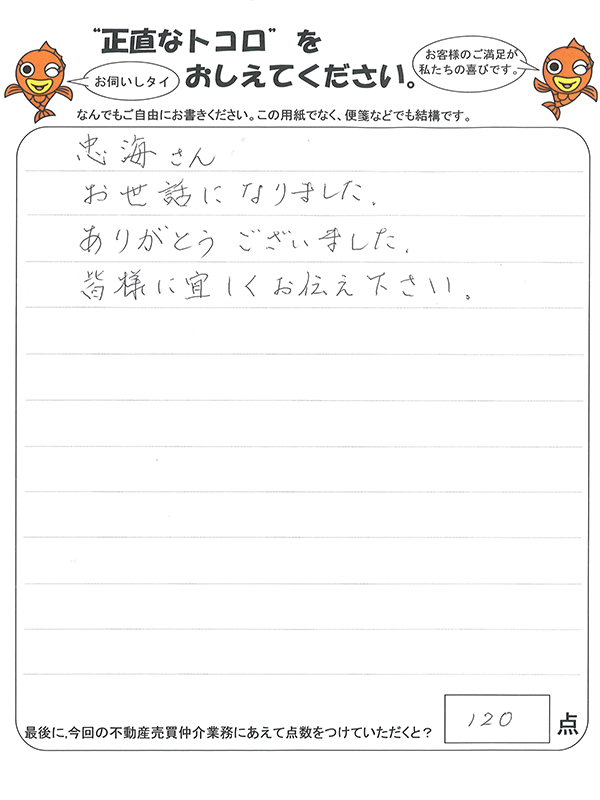 “正直なトコロ”を
おしえてください。
お伺いしタイ
お客様のご満足が
私たちの喜びです。
なんでもご自由にお書きください。この用紙でなく、便箋などでも結構です。
忠海さん
お世話になりました.
ありがとうございました.
皆様に宜しくお伝え下さい。
最後に,今回の不動産売買仲介業務にあえて点数をつけていただくと？
120
点